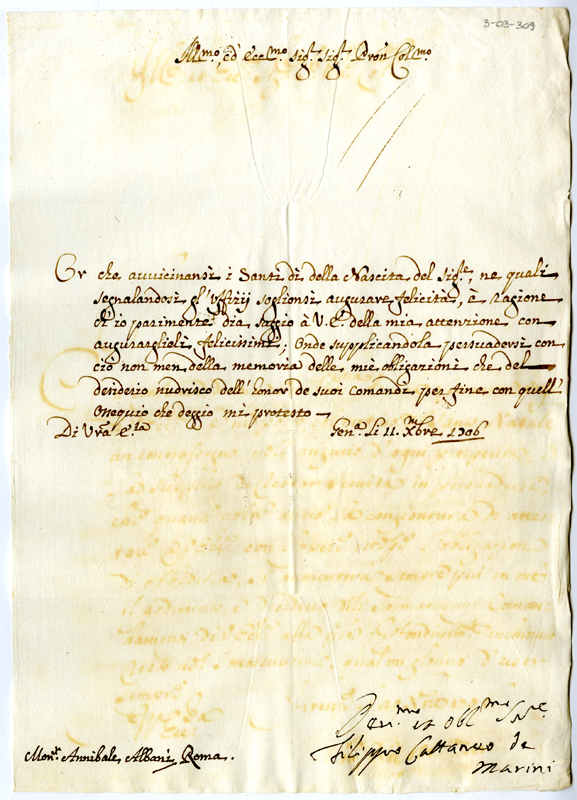 3-03-309
Ill.mo ed Ecc.mo Sig.r Sig.r Pron Col.mo
Or che avvicinansi i Santi dì della Nascita del Sig.re, ne quali
segnalandosi gl'Uffizij soglionsi augurare felicità, è ragione
ch'io parimente dia saggio à V.E. della mia attenzione con
augurarglieli felicissimi; Onde supplicandola persuadersi con
ciò non men della memoria delle mie obligazioni che del
desiderio nudrisco dell'honor de suoi comandi per fine con quell'
Onequio che deggio mi protesto
Di Vra E.za
Gen.a li 11 Xbre 1706
Dev.mo et obl.mo Se.re
Filippo Cattaneo de
Marini
Mon.r Annibale Albani Roma.